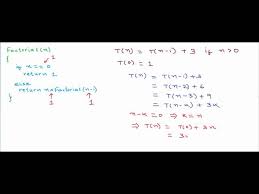 Factorial(n)
{
1
if n == 0
return 1
else
return n*Factorial(n-1)
}
1 1
T(n) = T(n-1) + 3 if n>0
T(0) = 1
T(n) = T(n-1) + 3
= T(n-2) + 6
= T(n-3) + 9
= T(n-k) + 3k
n-k=0 ⇒ k=n
⇒ T(n) = T(0) + 3n
= 3